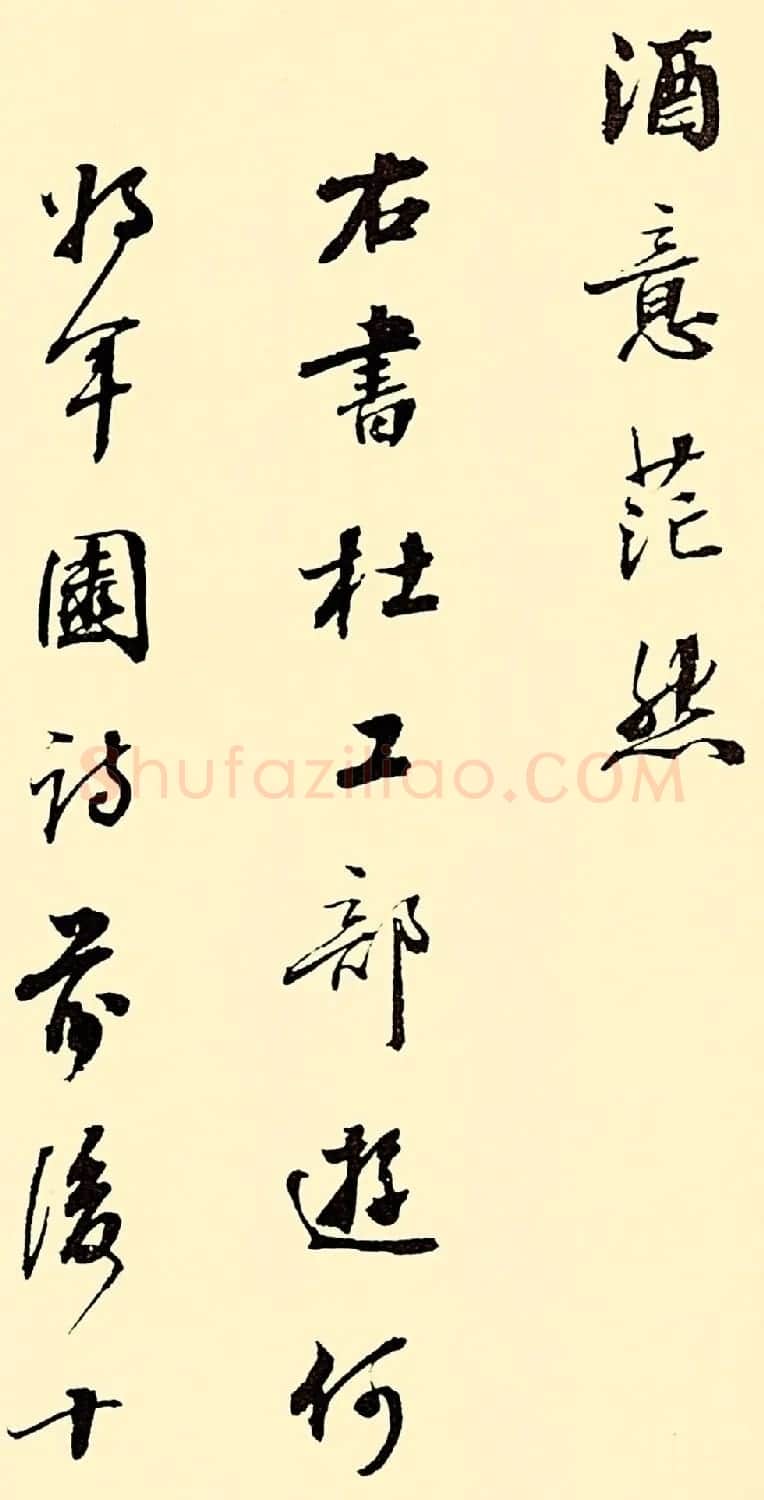 酒意茫然
右書杜工部遊何
將軍園詩前後十
Shufaziliao.COM